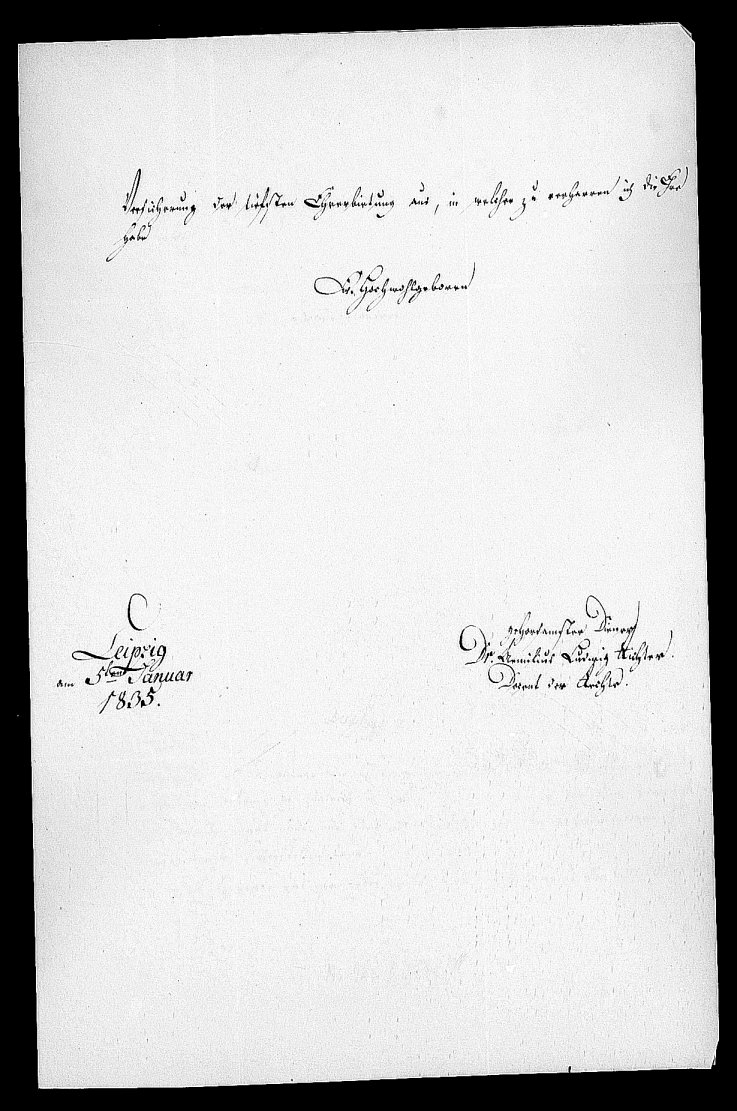 Versicherung der tiefsten Ehrerbietung aus, in welcher zu verharren ich die Ehre
habe
Ew. Hochwohlgeboren
gehorsamster Diener
Dr. Aemilius Ludwig Richter.
Docent der Rechte.
Leipzig
am 5ten Januar
1835.